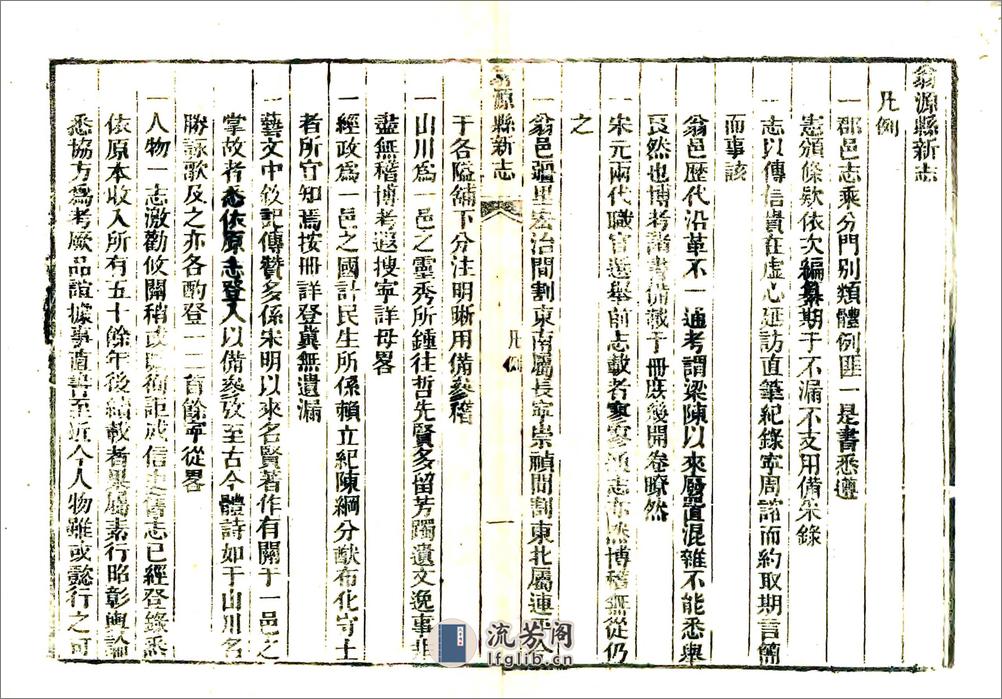 翁源縣新志
凡例
一郡邑志乘分門別類體例匪一是書悉遵
憲頒條欵依次編纂期于不漏不支用備采錄
一志以傳信貴在虛心延訪直筆紀錄寧周諮而約取期言簡
而事該
翁邑歷代沿革不一通考謂梁陳以來廢置混雜不能悉舉
良然也博考諸書備載于冊庶幾開卷瞭然
一宋元兩代職官選舉前志載者寥寥通志亦然博稽無從仍
之
一翁邑疆里宏治間割東南屬長寧崇禎間割東北屬連平今
于各隘鋪下分注明晰用備參稽
翁源縣新志
凡例
一
一山川爲一邑之靈秀所鍾往哲先賢多留芳躅遺文逸事非
盡無稽博考遐搜寧詳毋畧
一經政爲一邑之國計民生所係賴立紀陳綱分猷布化守土
者所宜知焉按冊詳登冀無遺漏
一藝文中敘記傳贊多係宋明以來名賢著作有關于一邑之
掌故者悉依原志登入以備參攷至古今體詩如于山川名
勝詠歌及之亦各酌登一二首餘寧從畧
一人物一志激勸攸關稍或詎成信史舊志已經登錄悉
依原本收入所有五十餘年後續載者畢屬素行昭彰輿論
悉協方爲考厥品誼據事直書至近今人物雖或懿行之可
流芳阁
lfglib.cn